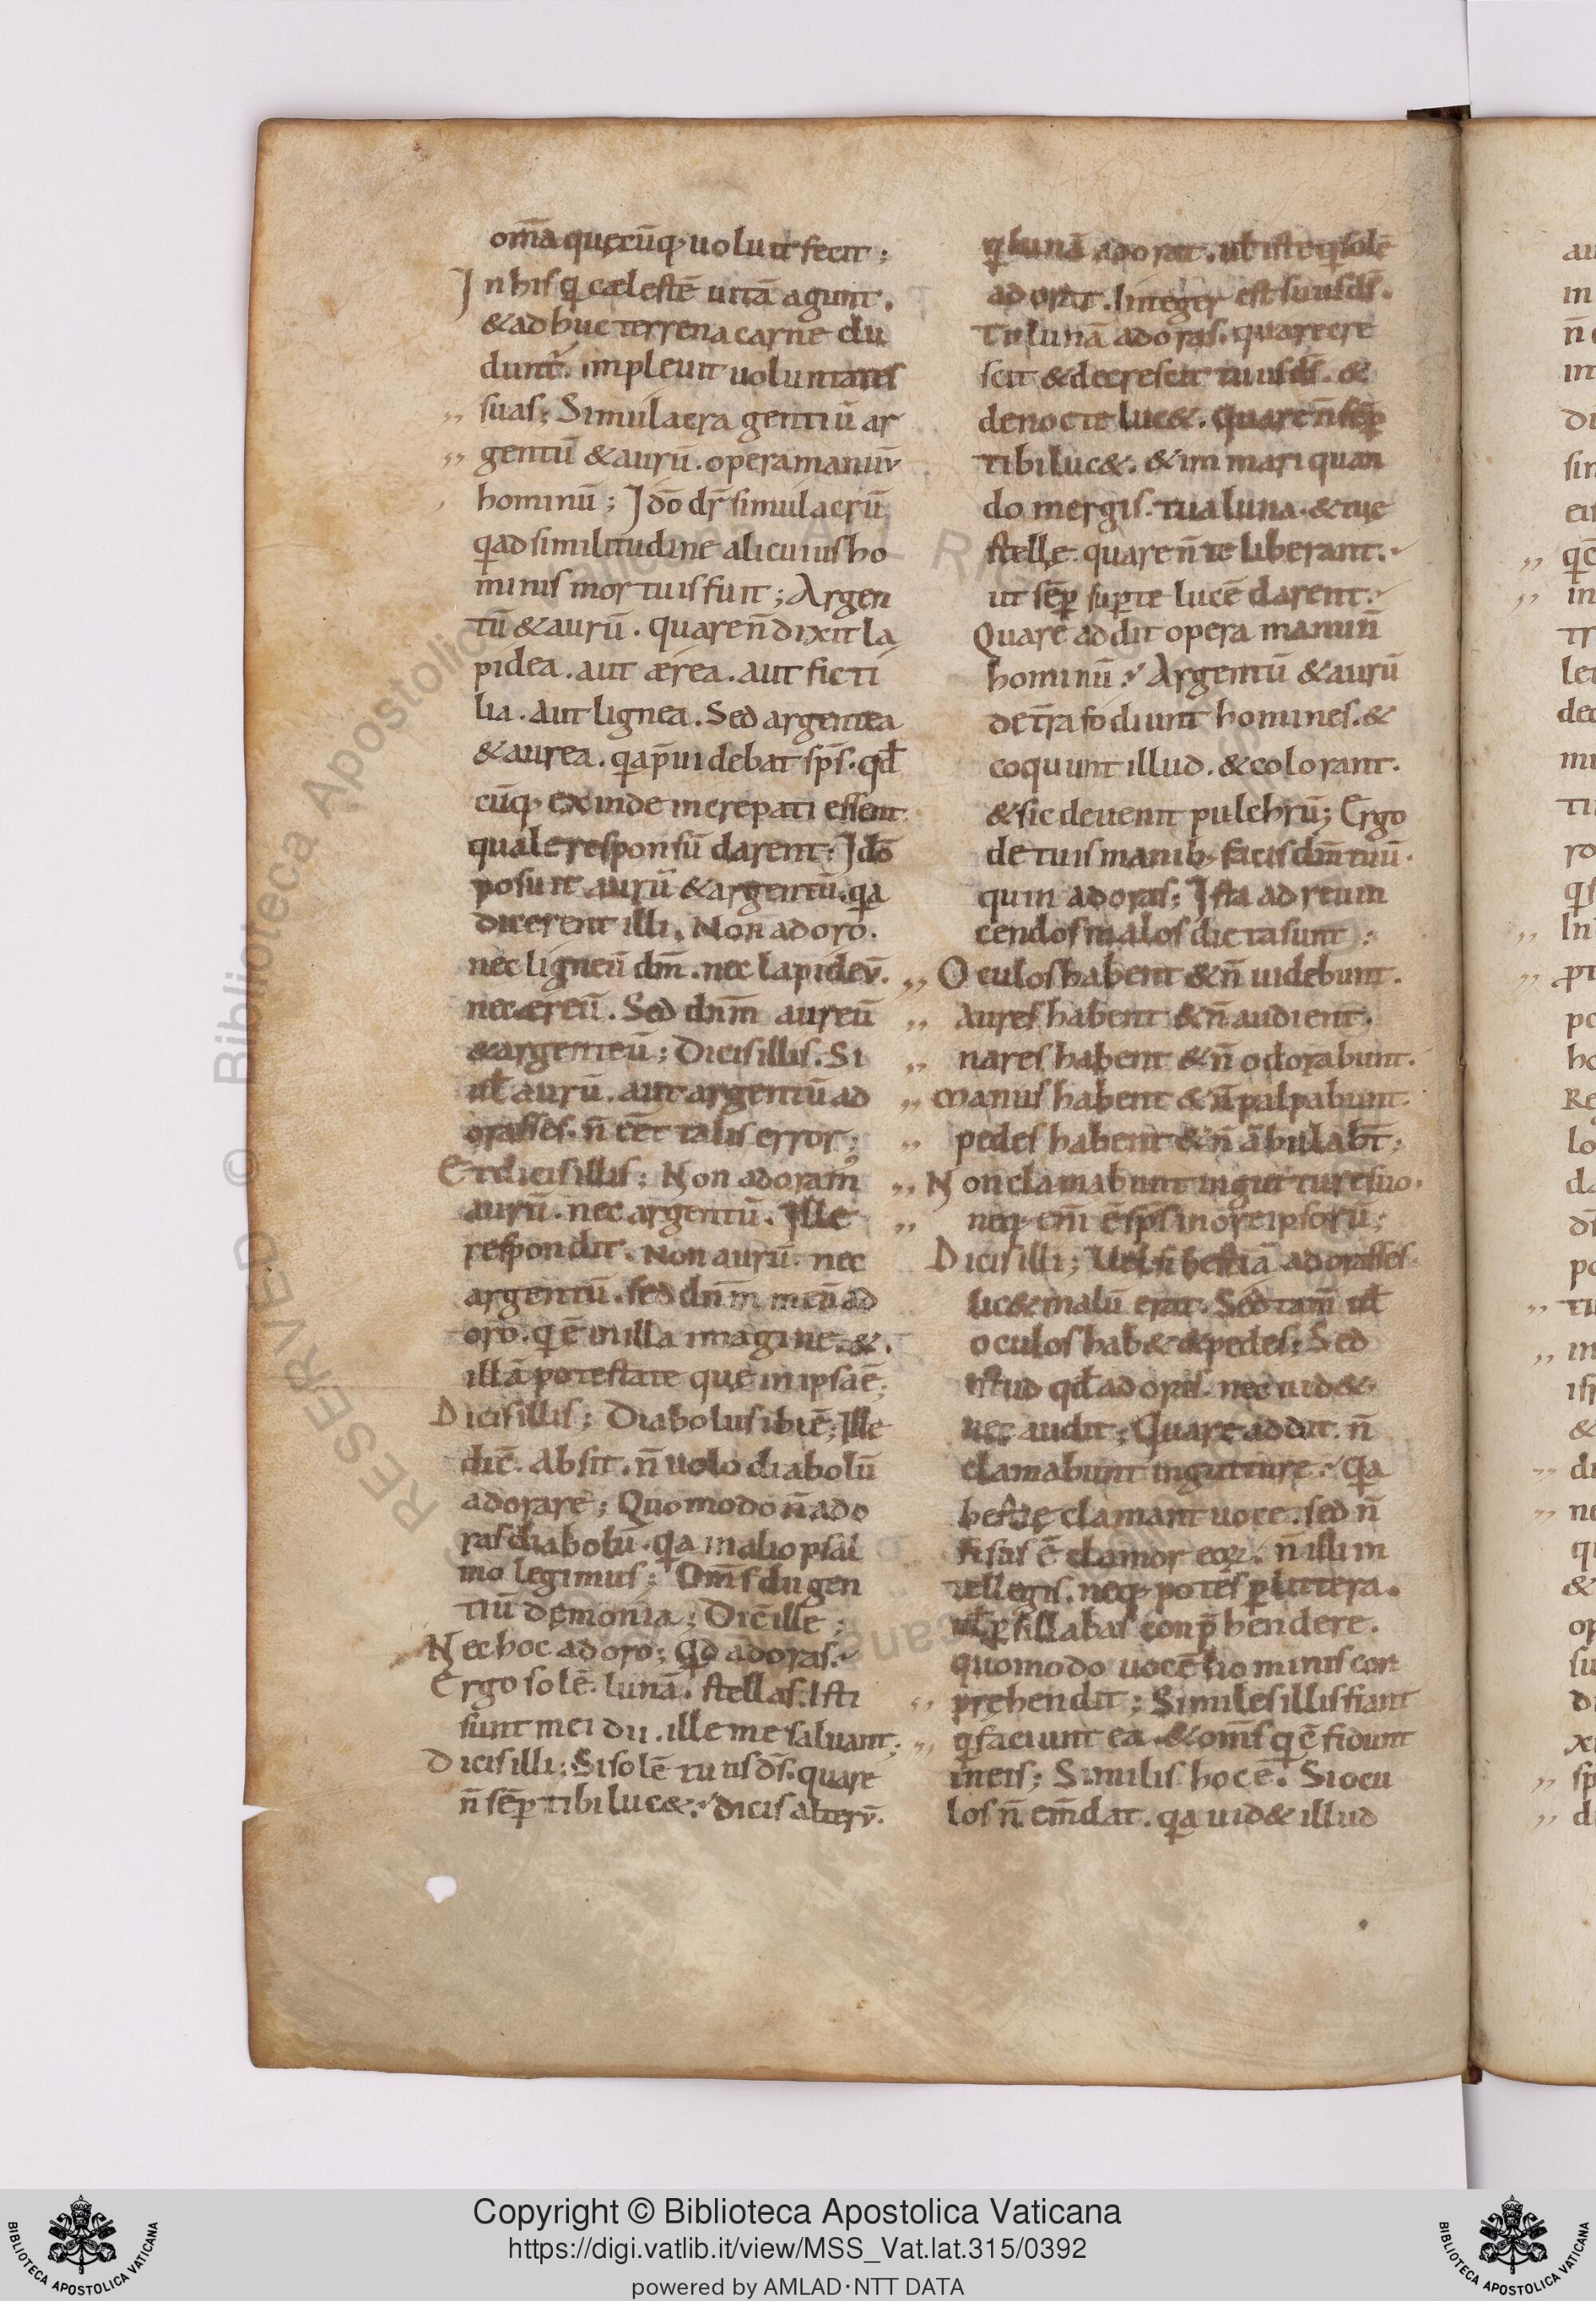 om̄a quęcūq; uoluit fecit;
In his q̣ cælestē uitā agunt.
& adhuc terrena carne clu
dunt̄. impleuit uoluntates
suas; Simulacra gentiū ar
gentū & aurū. opera manuū
hominū; Idō dr̄ simulacrū
q̣a ad similitudinē alicuius ho
minis mortuis fuit; Argen
tū & aurū. quare n̄ dixit la
pidea. aut ærea. aut ficti
lia. aut lignea. Sed argentea
& aurea. qa p̄uidebat sp̄s. qd̄
cūq; exinde increpati essent
quale responsū darent; Idō
posuit aurū & argentū. qa
dicerent illi. Non adoro.
nec ligneū dm̄. nec lapideū.
nec æreū. Sed dnm̄ aureū
& argenteū; Dicis illis. Si
ul̄ aurū. aut argentū ad
orasses. n̄ eēt talis error;
Et dicis illis; Non adoram᾽
aurū. nec argentū. Ille
respondit. Non aurū. nec
argentū. sed dnm̄ meū ad
oro. q̣ ē in illa imagine. &
illā potestate quę in ipsa ē;
Dicis illis; Diabolus ibi ē; Ille
dic̄. Absit. n̄ uolo diabolū
adorare; Quomodo n̄ ado
ras diabolū. qa in alio psal
mo legimus; Om̄s dii gen
tiū dęmonia; Dic̄ ille;
Nec hoc adoro; Qd̄ adoras?
Ergo solē. lunā. stellas. Isti
sunt mei dii. ille me saluant;
Dicis illi; Si solē tuus ds̄. quare
n̄ sēp tibi luc&? dicis alterū.
q̣ lunā adorat. ul̄ iste q̣ solē
adorat. Integer est suus ds̄.
Tu lunā adoras. quare cre
scit & decrescit tuus ds̄. &
de nocte luc&. quare n̄ sēp
tibi luc&. & im mari quan
do mergis. tua luna. & tuę
stellę. quare n̄ te liberant.
ut sēp sup te lucē darent?
Quare addit opera manuū
hominū? Argentū & aurū
de tr̄a fodiunt homines. &
coquunt illud. & colorant.
& sic deuenit pulchrū; Ergo
de tuis manib; facis dm̄ tuū.
quin adoras; Ista ad reuin
cendos malos dicta sunt;
Oculos habent & n̄ uidebunt.
Aures habent & n̄ audient.
nares habent & n̄ odorabunt.
Manus habent & n̄ palpabunt.
pedes habent & n̄ ābulabt̄;
Non clamabunt in gutture suo.
neq; eni̅ ē sp̄s in ore ipsorū;
Dicis illi; Uel si bestiā adorasses.
lic& malū erat. Sed tam̄ ul̄
oculos hab& & pedes; Sed
istud qd̄ adoras. nec uid&.
nec audit; Quare addit. n̄
clamabunt in gutture? Qa
bestię clamant uoce. sed n̄
sensus ē clamor eoꝝ. n̄ ill in
tellegis. neq; potes p littera.
ul̄ p sillabas conp̄hendere.
quomodo uocē hominis con
prehendit; Similes illis fiant
q̣ faciunt ea. & om̄s q̣ c̄fidunt
in eis; Similis hoc ē. Si ocu
los n̄ em̄dat. qa uid& illud
Copyright © Biblioteca Apostolica Vaticana
https://digi.vatlib.it/view/MSS_Vat.lat.315/0392
powered by AMLAD·NTT DATA